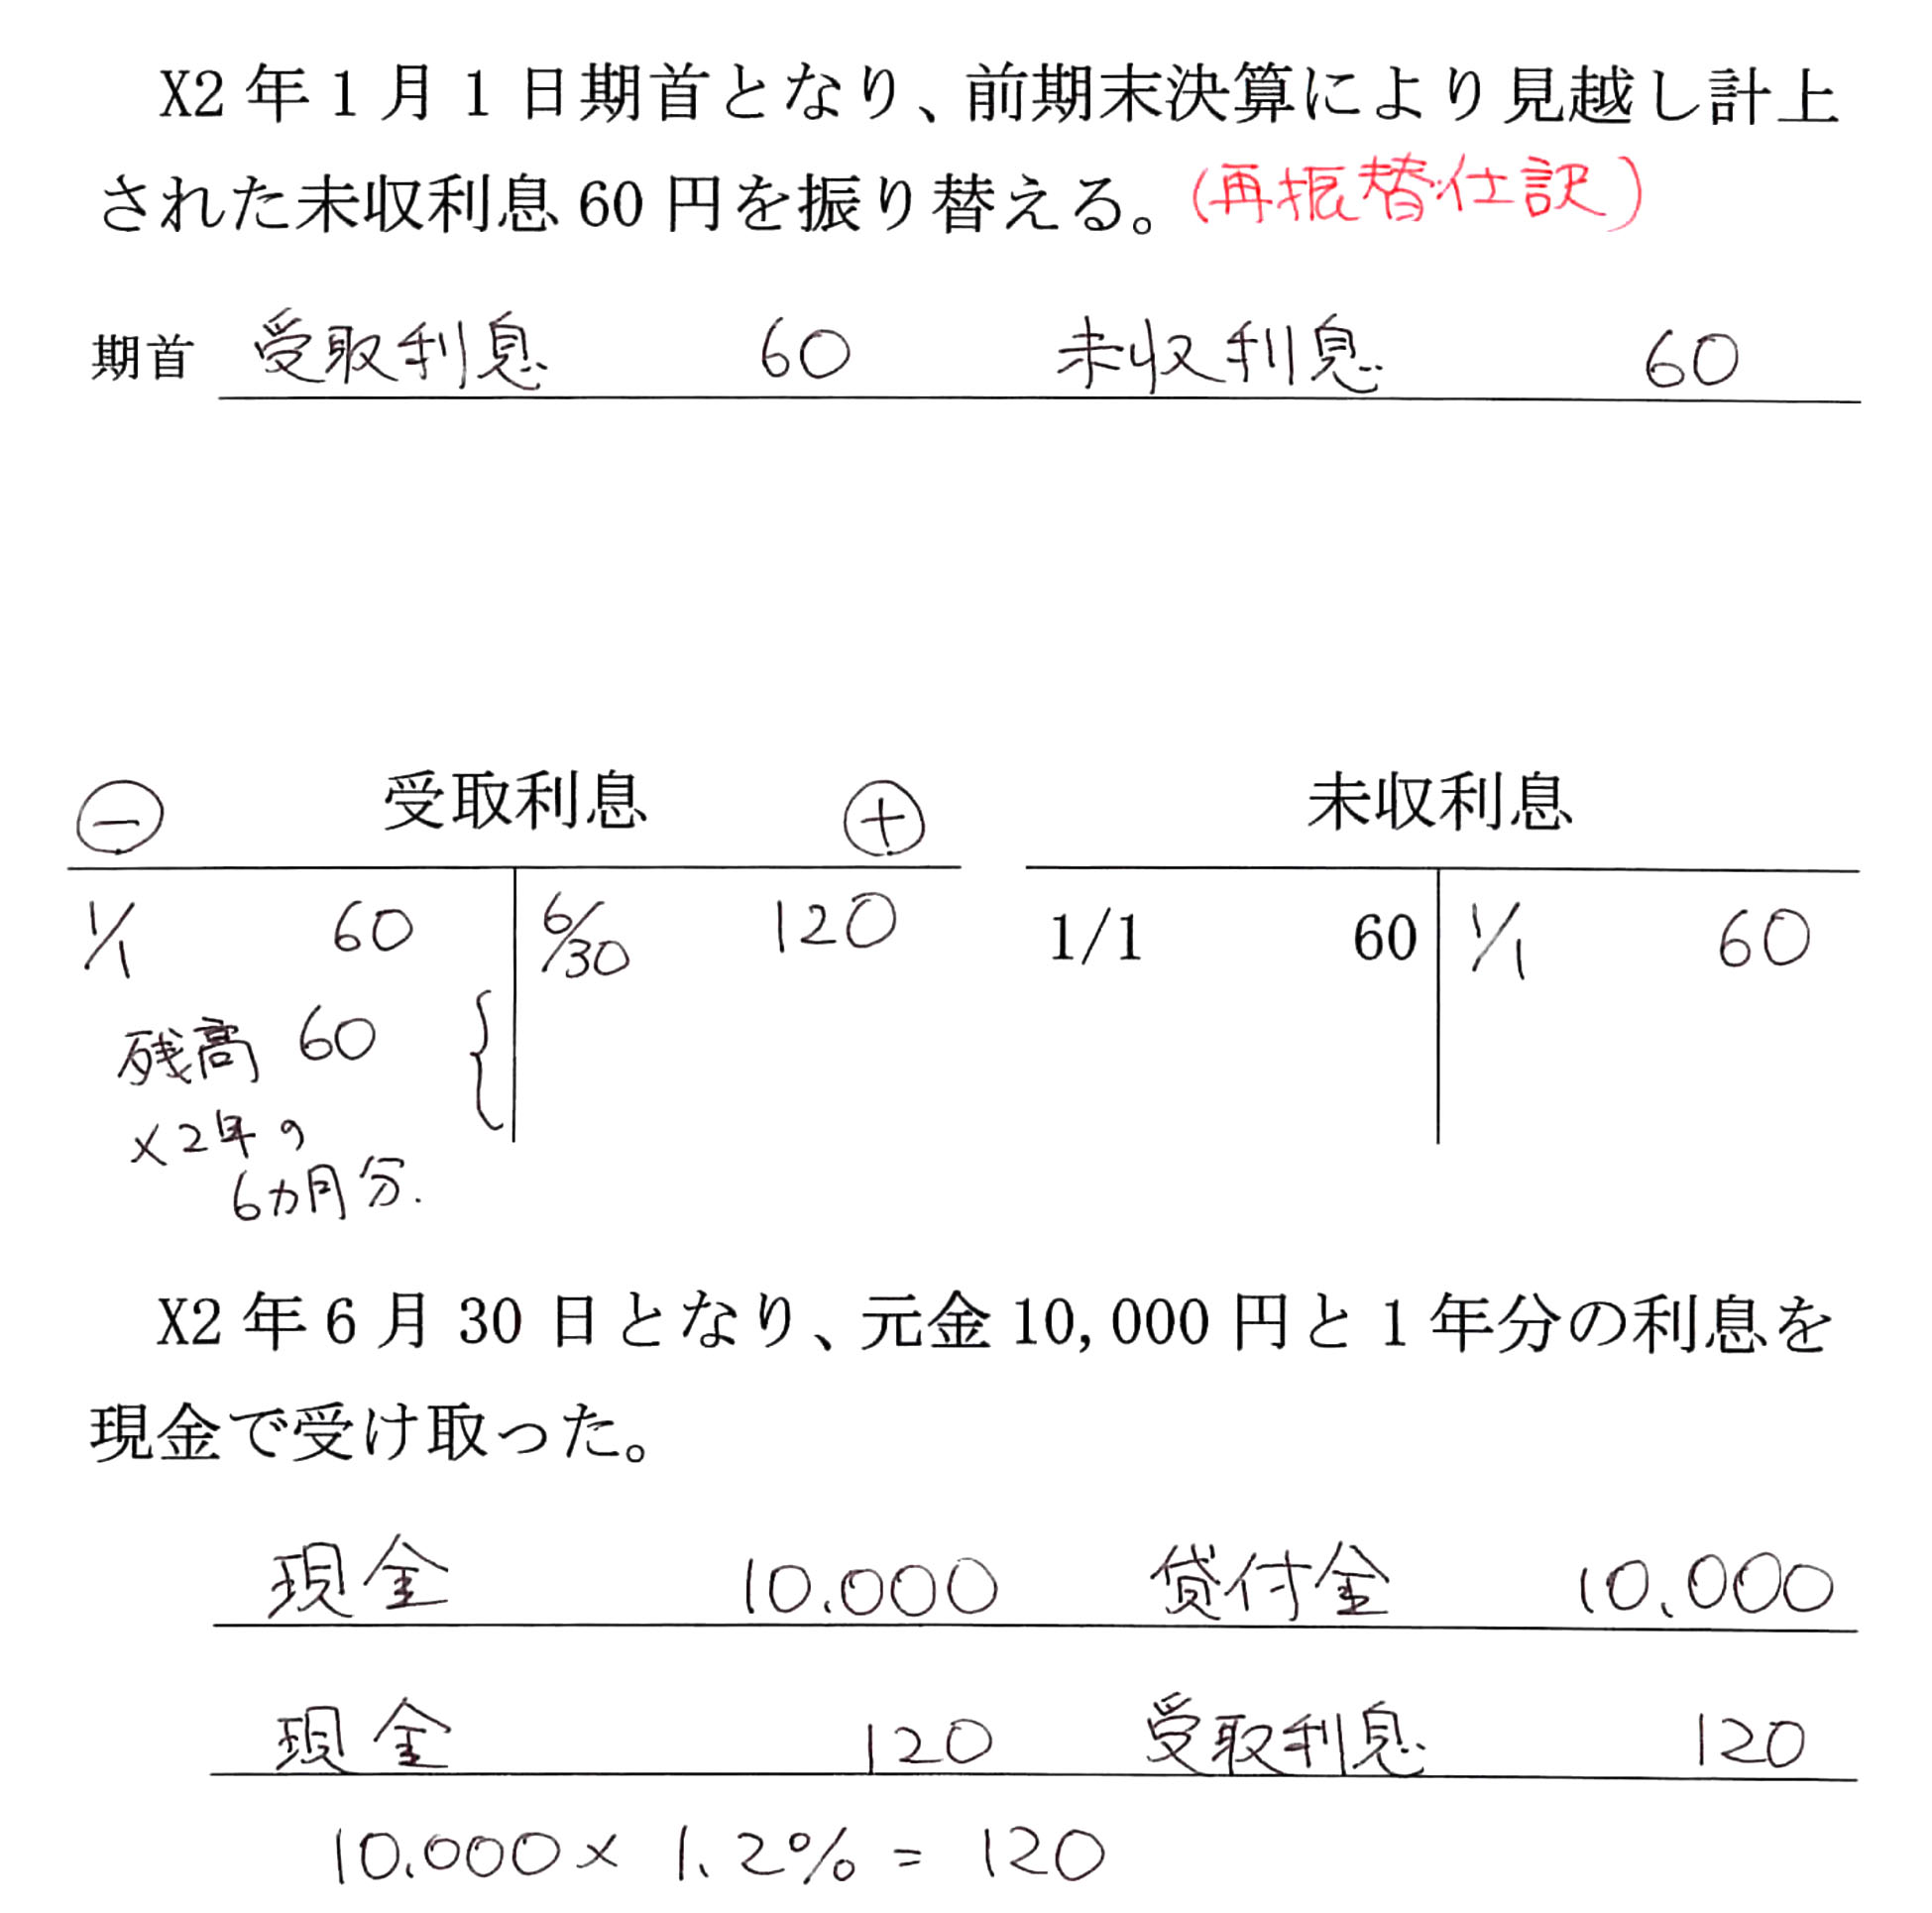 X2年1月1日期首となり、前期末決算により見越し計上
された未収利息60円を振り替える。(再振替仕訳)
期首 受取利息 60 未収利息 60
⊖ 受取利息 ⊕ 未収利息
1/1 60 6/30 120 1/1 60 1/1 60
残高 60 {
×2年の
6カ月分.
X2年6月30日となり、元金10,000円と1年分の利息を
現金で受け取った。
現金 10.000 貸付金 10.000
現金 120 受取利息 120
10.000× 1.2% = 120